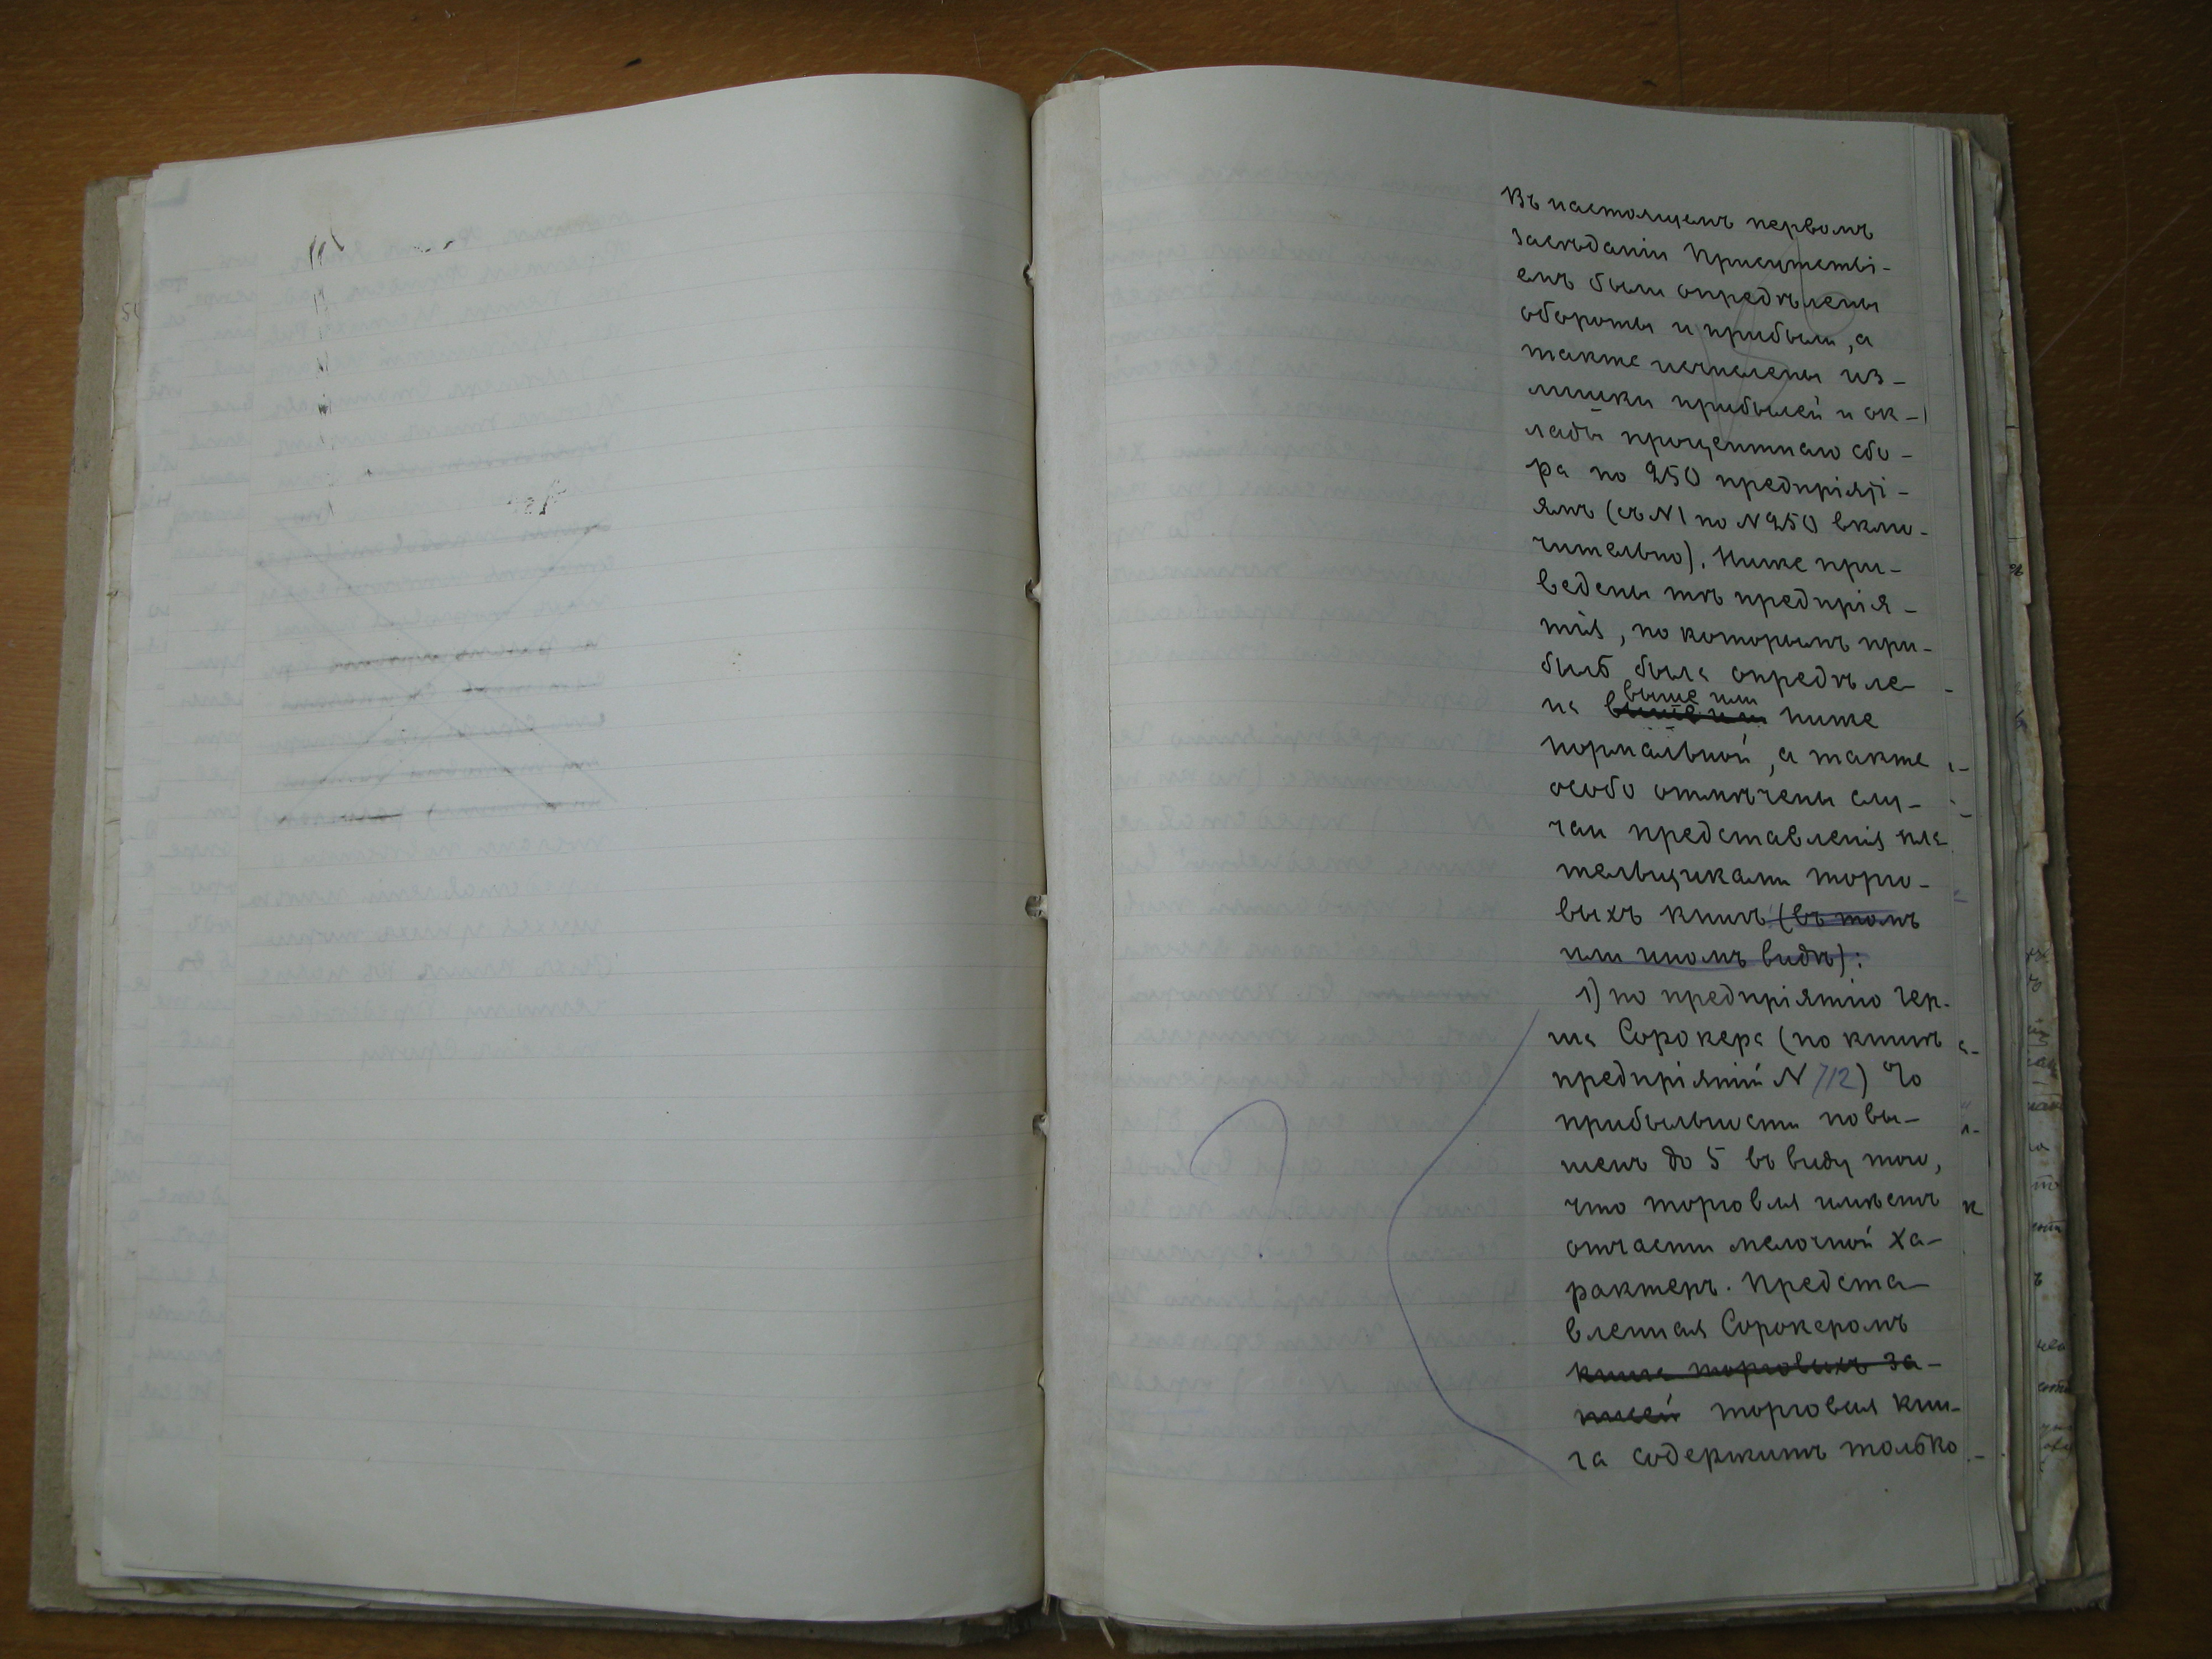 Въ настоящемъ первомъ
засѣданіи Присутстві-
емъ были опредѣлены
обороты и прибыли, а
также исчислены из-
лишки прибылей и ок-
лады процентнаго сбо-
ра по 250 предпріяті-
ямъ (съ N1 по N250 вклю-
чительно). Ниже при-
ведены тѣ предпрія-
тія, по которымъ при-
быль была опредѣле-
на выше или ниже
нормальной, а также
особо отмѣчены слу-
чаи представленія пла
тельщиками торго-
выхъ книгъ (въ томъ
или иномъ видѣ):
1) по предпріятію Гер-
ша Сорокера (по книгѣ
предпріятій N 712) %
прибыльности повы-
шенъ до 5 въ виду того,
что торговля имѣетъ
отчасти мелочной ха-
рактеръ. Предста-
вленная Сорокеромъ
книга торговыхъ за-
писей торговая кни-
га содержитъ только